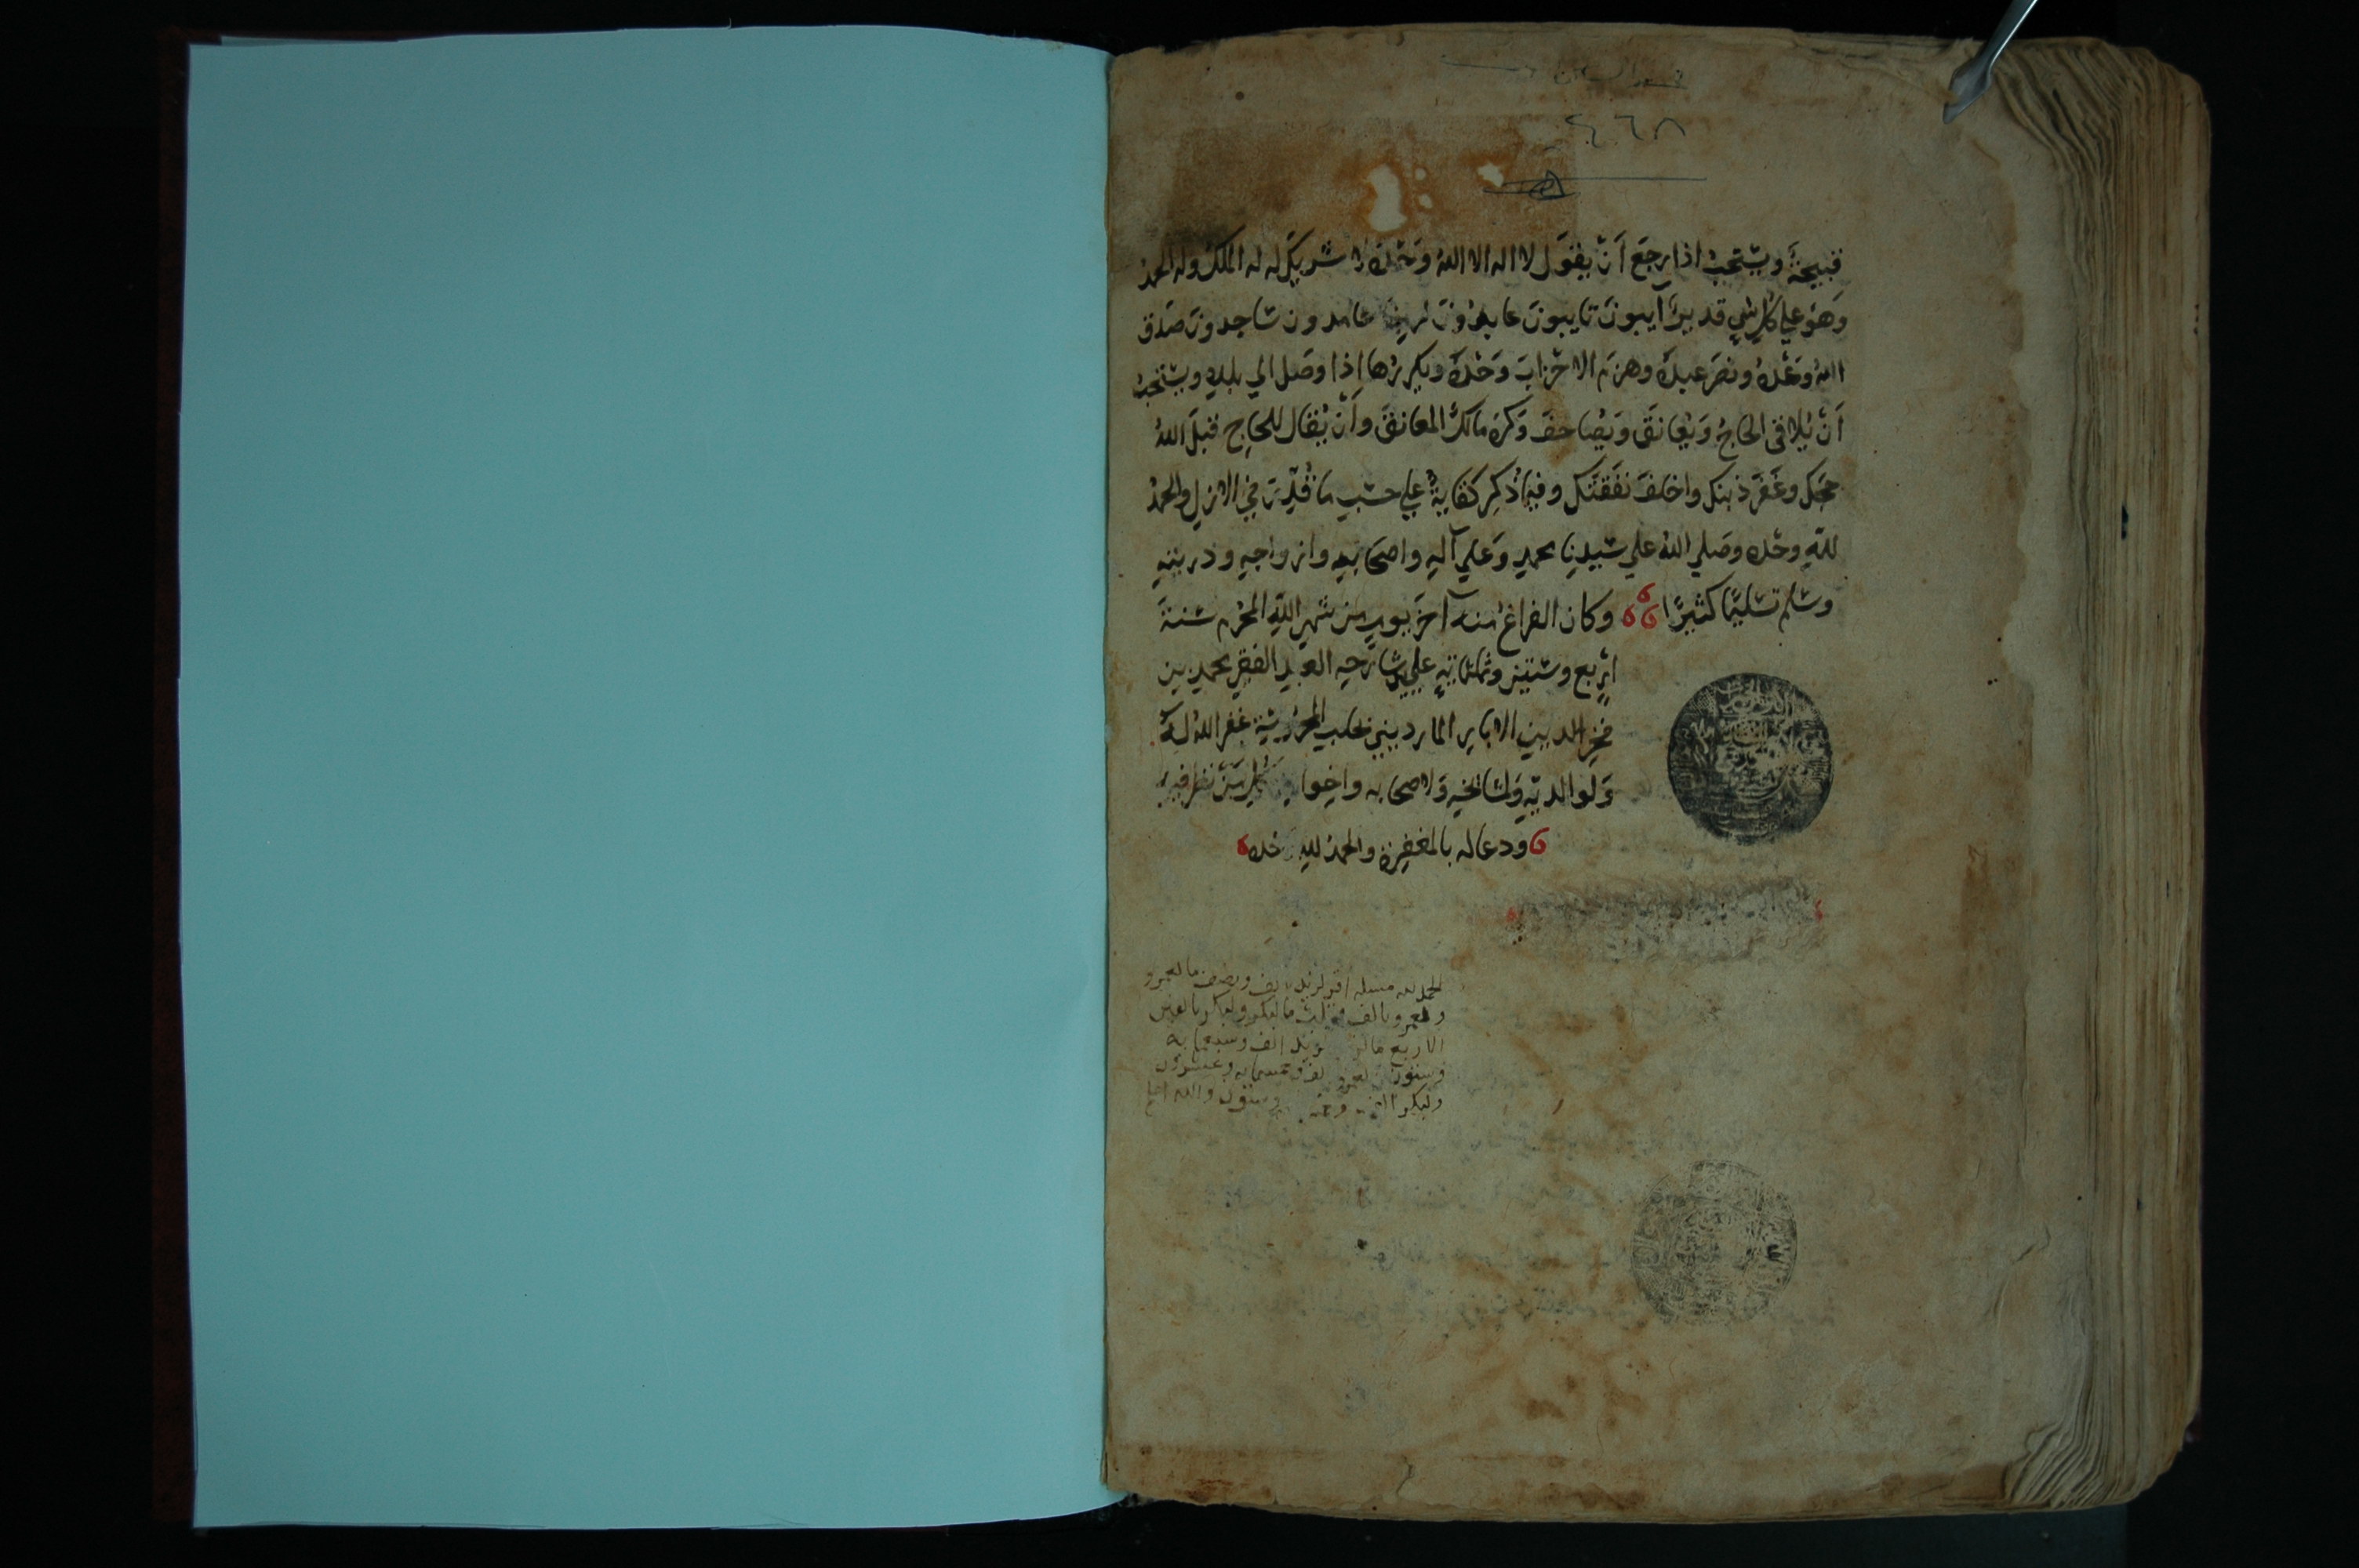 ٤٦٨
قبيحة ويستحب اذا رجع أن يقول لا اله الا الله وحده لا شريك له له الملك وله الحمد
وهو علي كل شي قدير آيبون تايبون عابدون لربنا حامدون ساجدون صدق
الله وعده ونصر عبده وهزم الاحزاب وحده ويكررها اذا وصل الي بلده ويستحب
أن يلاقى الحاج ويعانق ويصافح وكره مالك المعانقة وأن يقال للحاج قبل الله
حجك وغفر ذنبك واخلف نفقتك وفيما ذكر كفاية علي حسب ما قدر في الازل والحمد
لله وحده وصلي الله علي سيدنا محمد وعلي آله واصحابه وازواجه وذريته
وسلم تسليما كثيرا وكان الفراغ منه آخر يوم من شهر الله المحرم سنة
اربع وستين وثمانماية علي يد شارحه العبد الفقير محمد بن
فخر الدين الابار المارديني بحلب المحروسة غفر الله له
ولوالديه ولمشايخه ولاصحابه واخوانه ولكل من نظر فيه
ودعا له بالمغفرة والحمد لله وحده
الحمد لله مسئلة اقر لزيد بالف ونصف ما لعمرو
ولعمرو بالف وثلث ما لبكر ولبكر بالف
الا ربع ما لزيد لزيد الف وسبعماية
وستون لعمرو وعشرون
ولبكر وستون والله اعلم